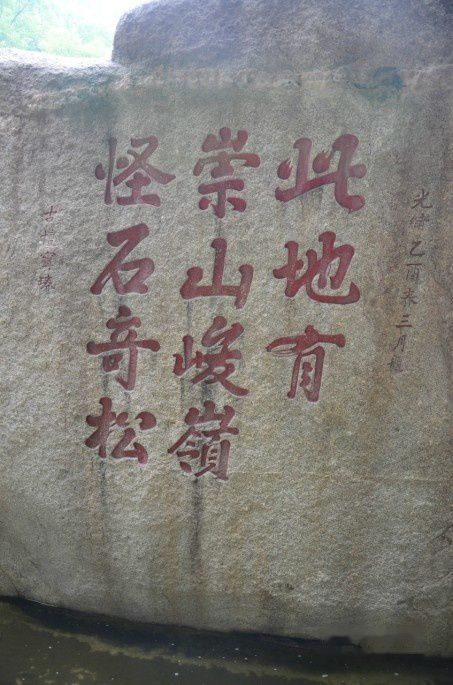 光緒乙酉春三月
此地有
崇山峻嶺
怪石奇松